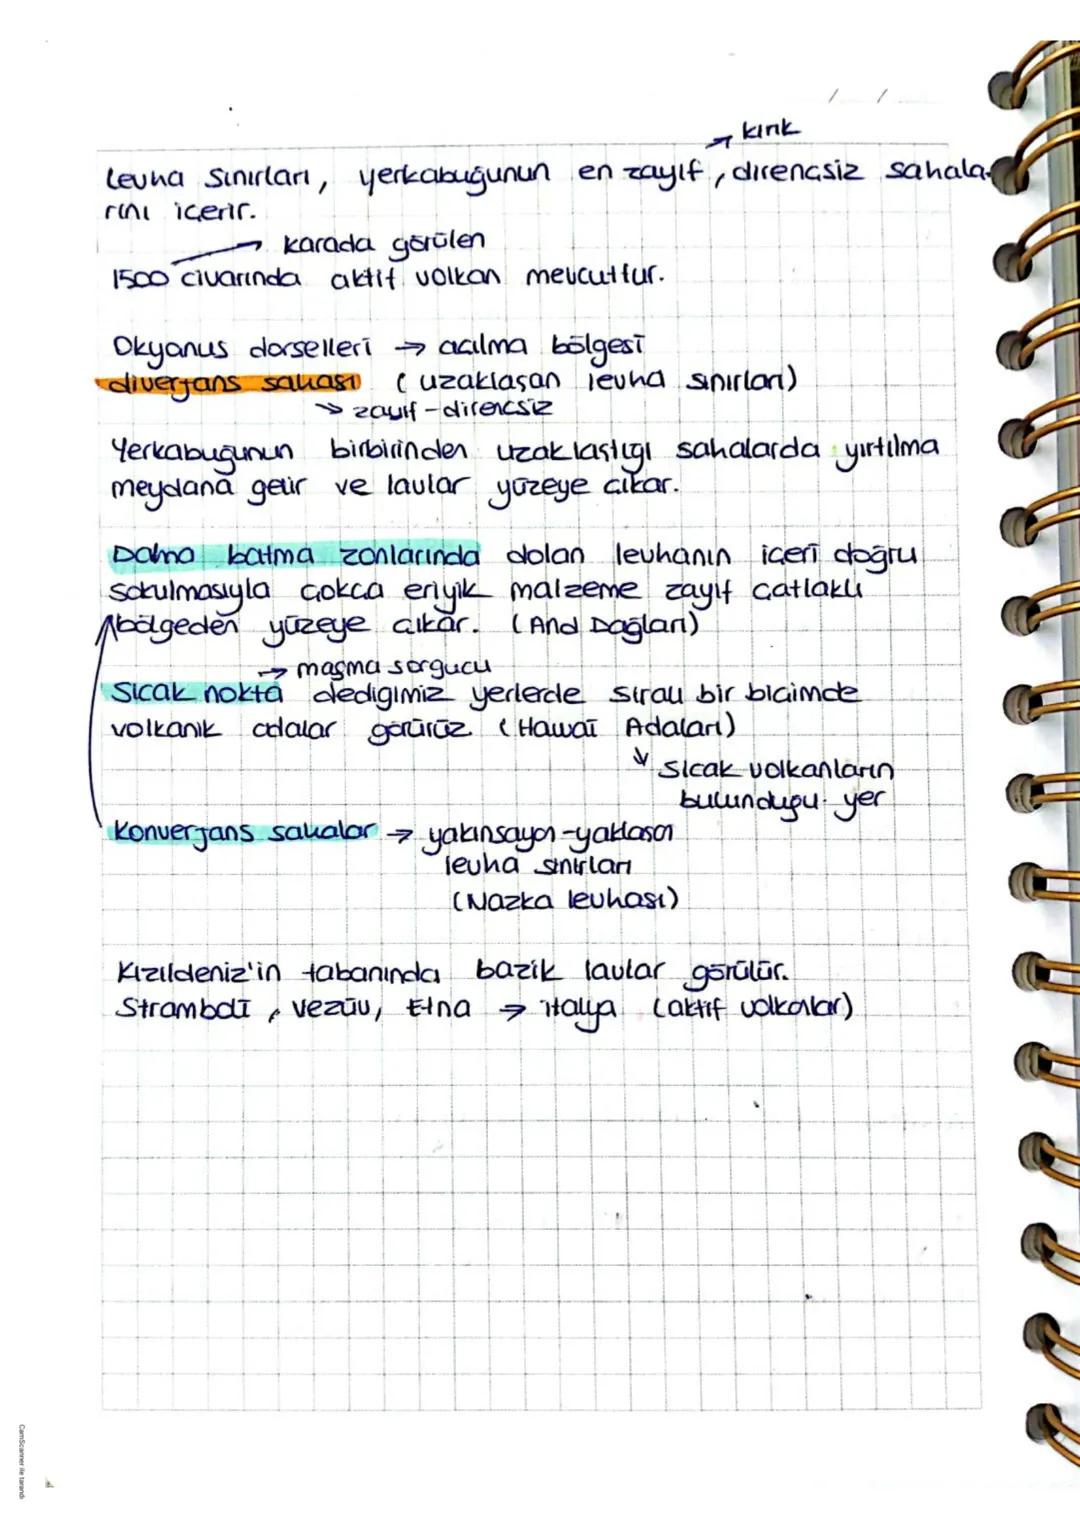 / /
→ kırık
Levha sınırları, yerkabuğunun en zayıf, dirençsiz sahala-
rını içerir.
→ karada görülen
1500 civarında aktif volkan mevcuttur.
Okyanus dorselleri → açılma bölgesi
diverjans sahası (uzaklaşan levha sınırları)
→ zayıf-dirençsiz
Yerkabuğunun birbirinden uzaklaştığı sahalarda yırtılma
meydana gelir ve lavlar yüzeye çıkar.
Dalma batma zonlarında dalan levhanın içeri doğru
sokulmasıyla çokça eriyik malzeme zayıf çatlaklı
bölgeden yüzeye çıkar. (And Dağları)
→ magma sorgucu
Sıcak nokta dediğimiz yerlerde sıralı bir biçimde
volkanik adalar görürüz (Hawai Adaları)
↓ Sıcak volkanların
bulunduğu yer
Konverjans sahalar → yakınsayan-yaklaşan
levha sınırları
(Nazka levhası)
Kızıldeniz'in tabanında bazik lavlar görülür.
Stramboli, Vezüv, Etna → İtalya (aktif volkanlar)
CamScanner ile tarandı